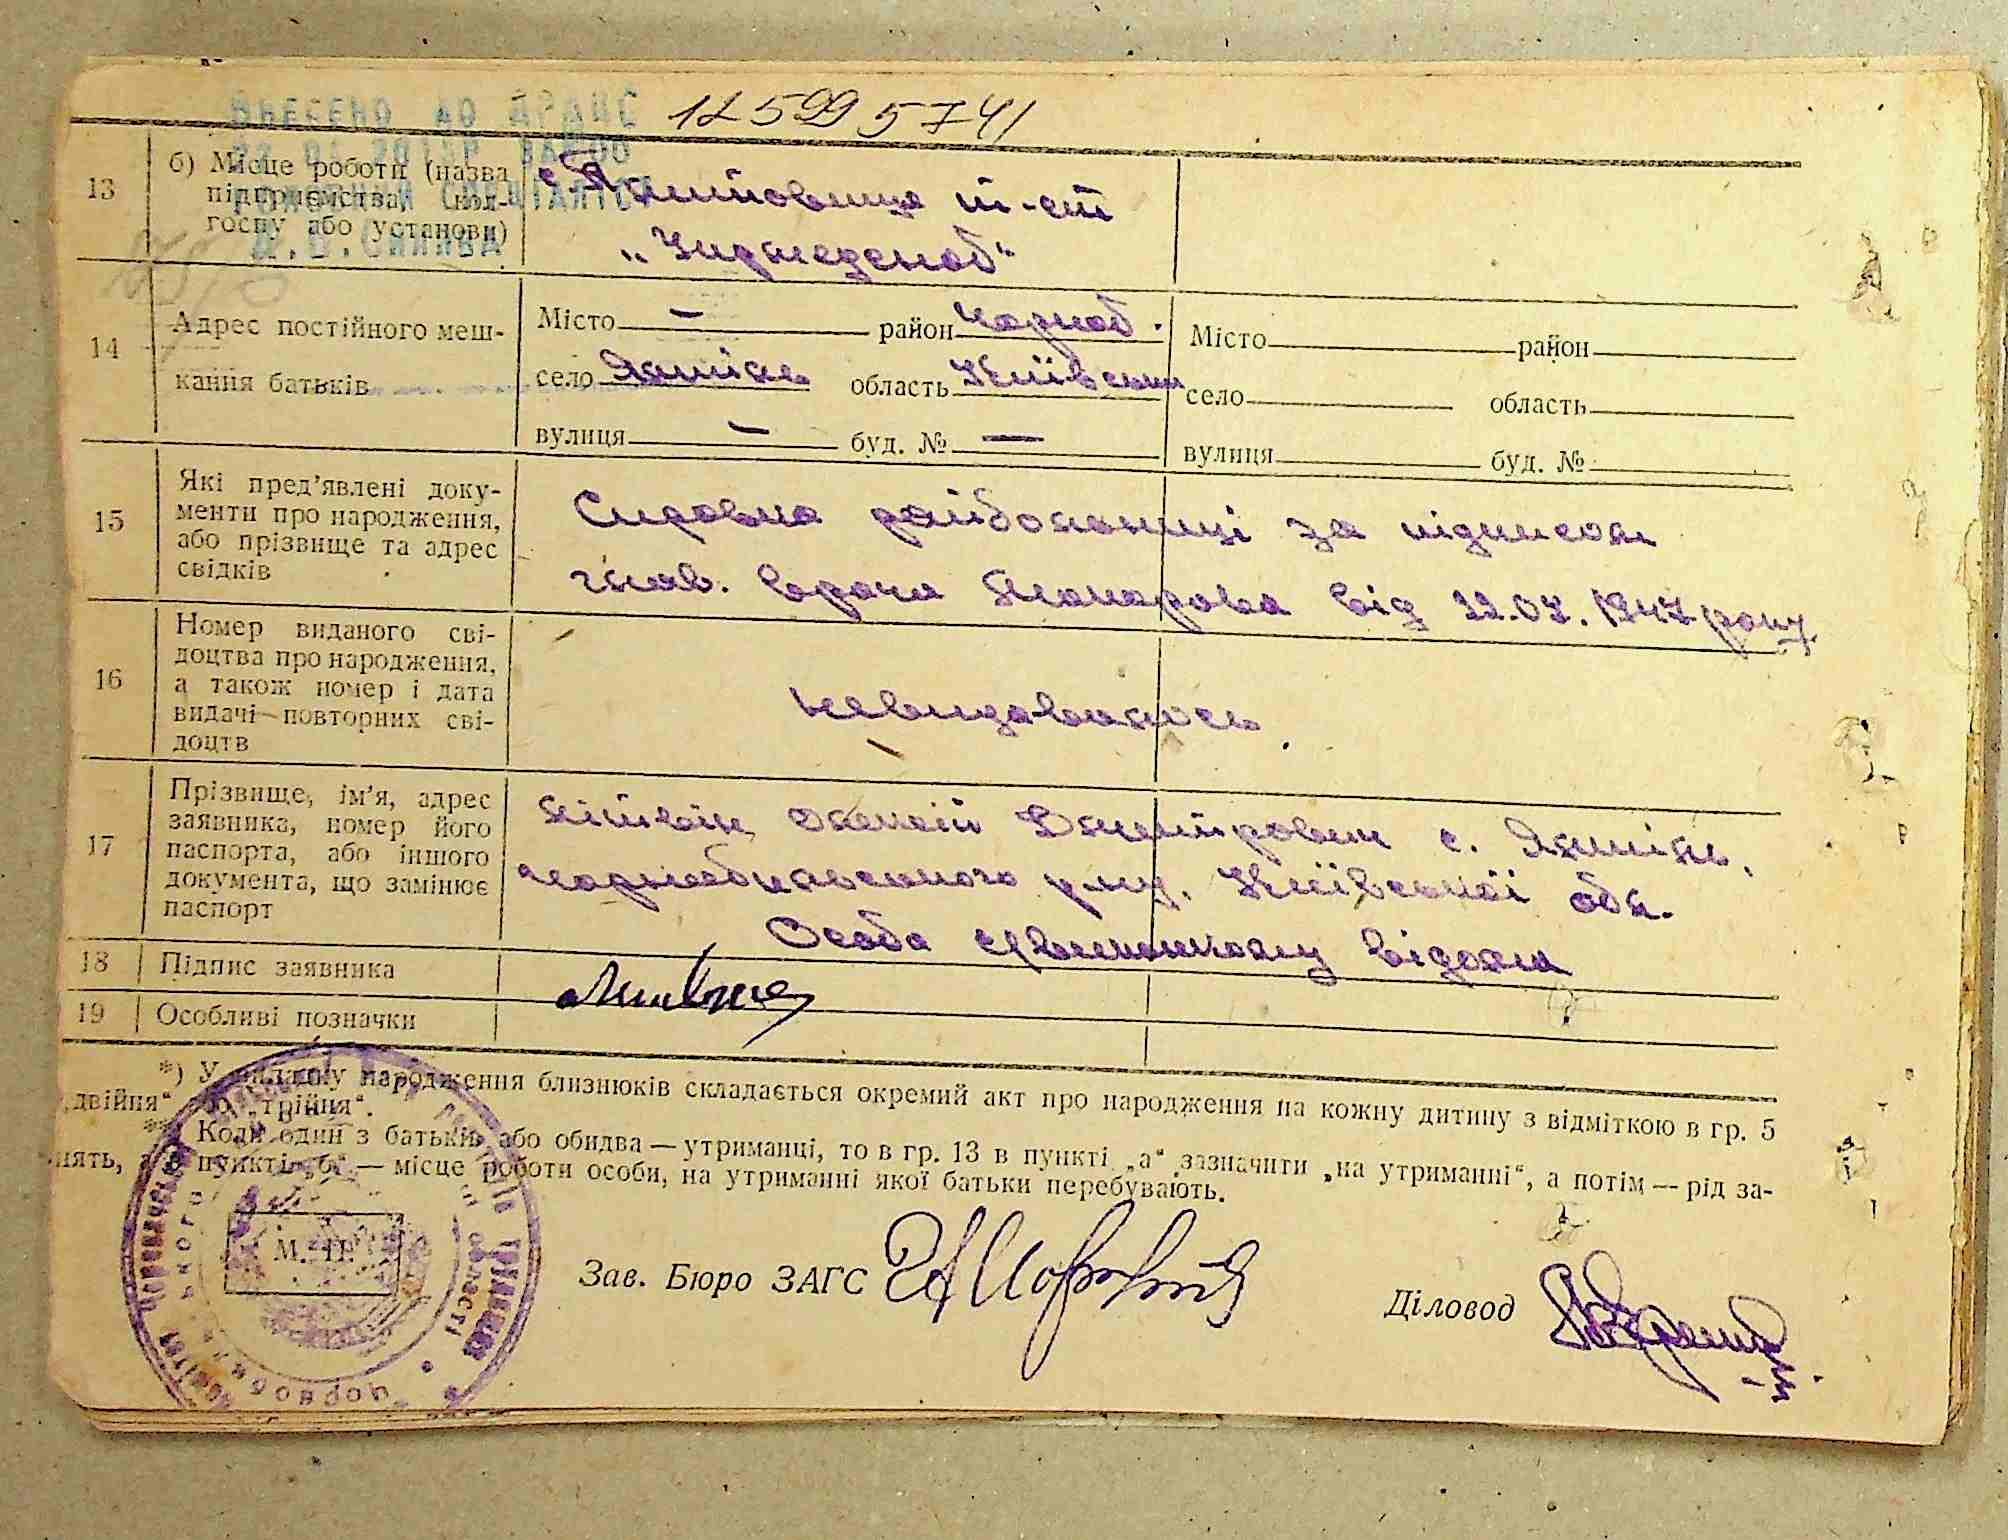 ВНЕСЕНО ДО ДРАЦС
125995741
13
б) Місце роботи (назва
підприємства, кол-
госпу або установи)
14
Адрес постійного меш-
кання батьків
Місто — район Чорноб.
село область Київська
вулиця — буд. № —
Місто район
село область
вулиця буд. №
15
Які пред’явлені доку-
менти про народження,
або прізвище та адрес
свідків
Справка райбольниці за підписом
глав. врача від 22.07.1947 року.
16
Номер виданого сві-
доцтва про народження,
а також номер і дата
видачі повторних сві-
доцтв
невидавалось
17
Прізвище, ім’я, адрес
заявника, номер його
паспорта, або іншого
документа, що замінює
паспорт
Літвін Олексій Дмитрович с.
Чорнобильського р-ну, Київської обл.
Особа відома
18 Підпис заявника
19 Особливі позначки
*) У випадку народження близнюків складається окремий акт про народження на кожну дитину з відміткою в гр. 5
„двійня“ або „трійня“.
** Коли один з батьків або обидва — утриманці, то в гр. 13 в пункті „а“ зазначити „на утриманні“, а потім — рід за-
нять, а в пункті „б“ — місце роботи особи, на утриманні якої батьки перебувають.
М. П.
Зав. Бюро ЗАГС
Діловод